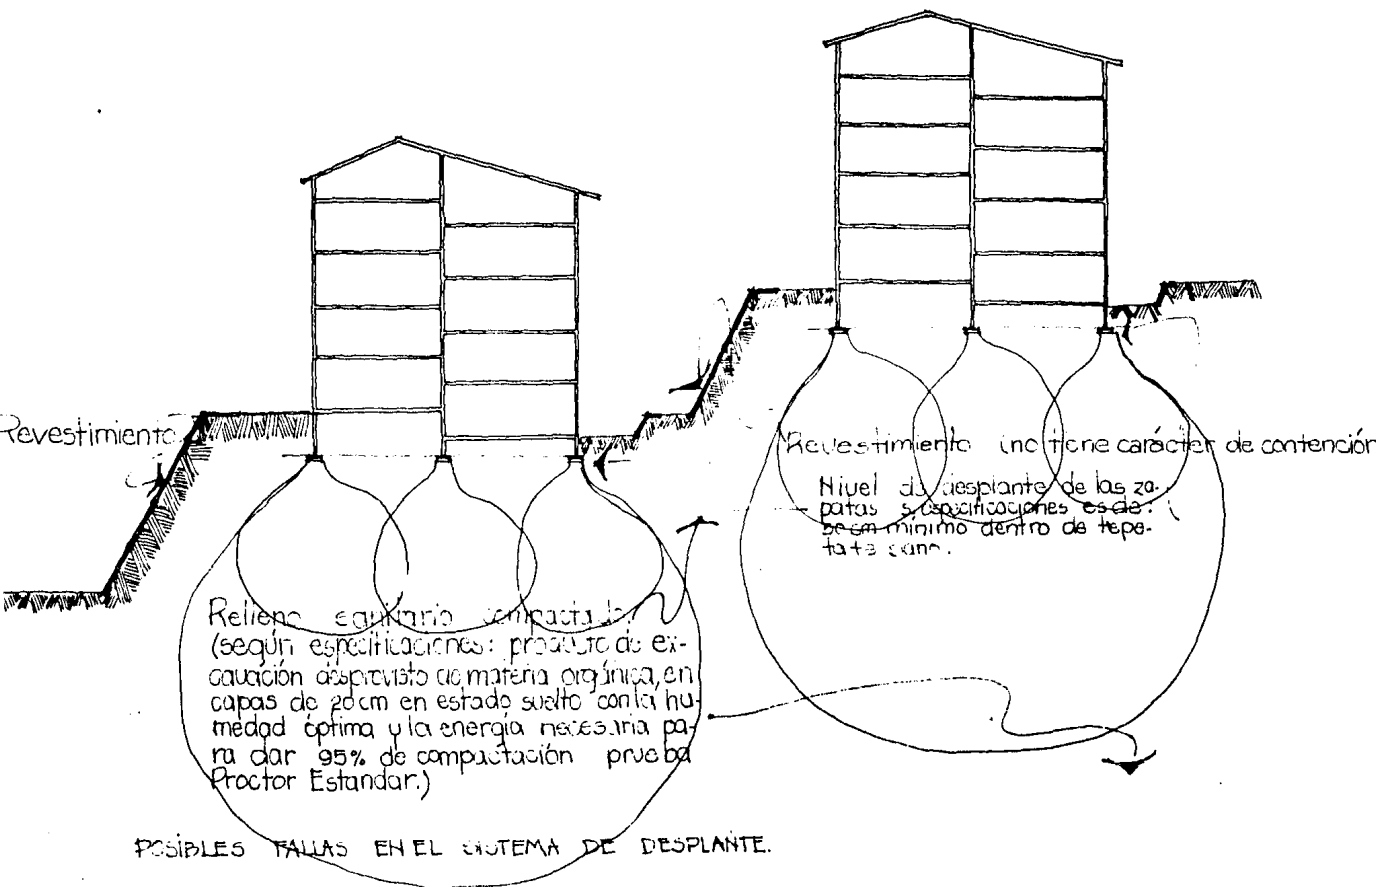 Revestimiento
Revestimiento (no tiene carácter de contención
Nivel de desplante de las za-
patas s/especificaciones es de:
50 cm mínimo dentro de tepe-
tate sano.
Relleno sanitario compactado.
(según especificaciones: producto de ex-
cavación desprovisto de materia orgánica, en
capas de 20 cm en estado suelto con la hu-
medad óptima y la energía necesaria pa-
ra dar 95% de compactación prueba
Proctor Estandar.)
POSIBLES FALLAS EN EL SISTEMA DE DESPLANTE.